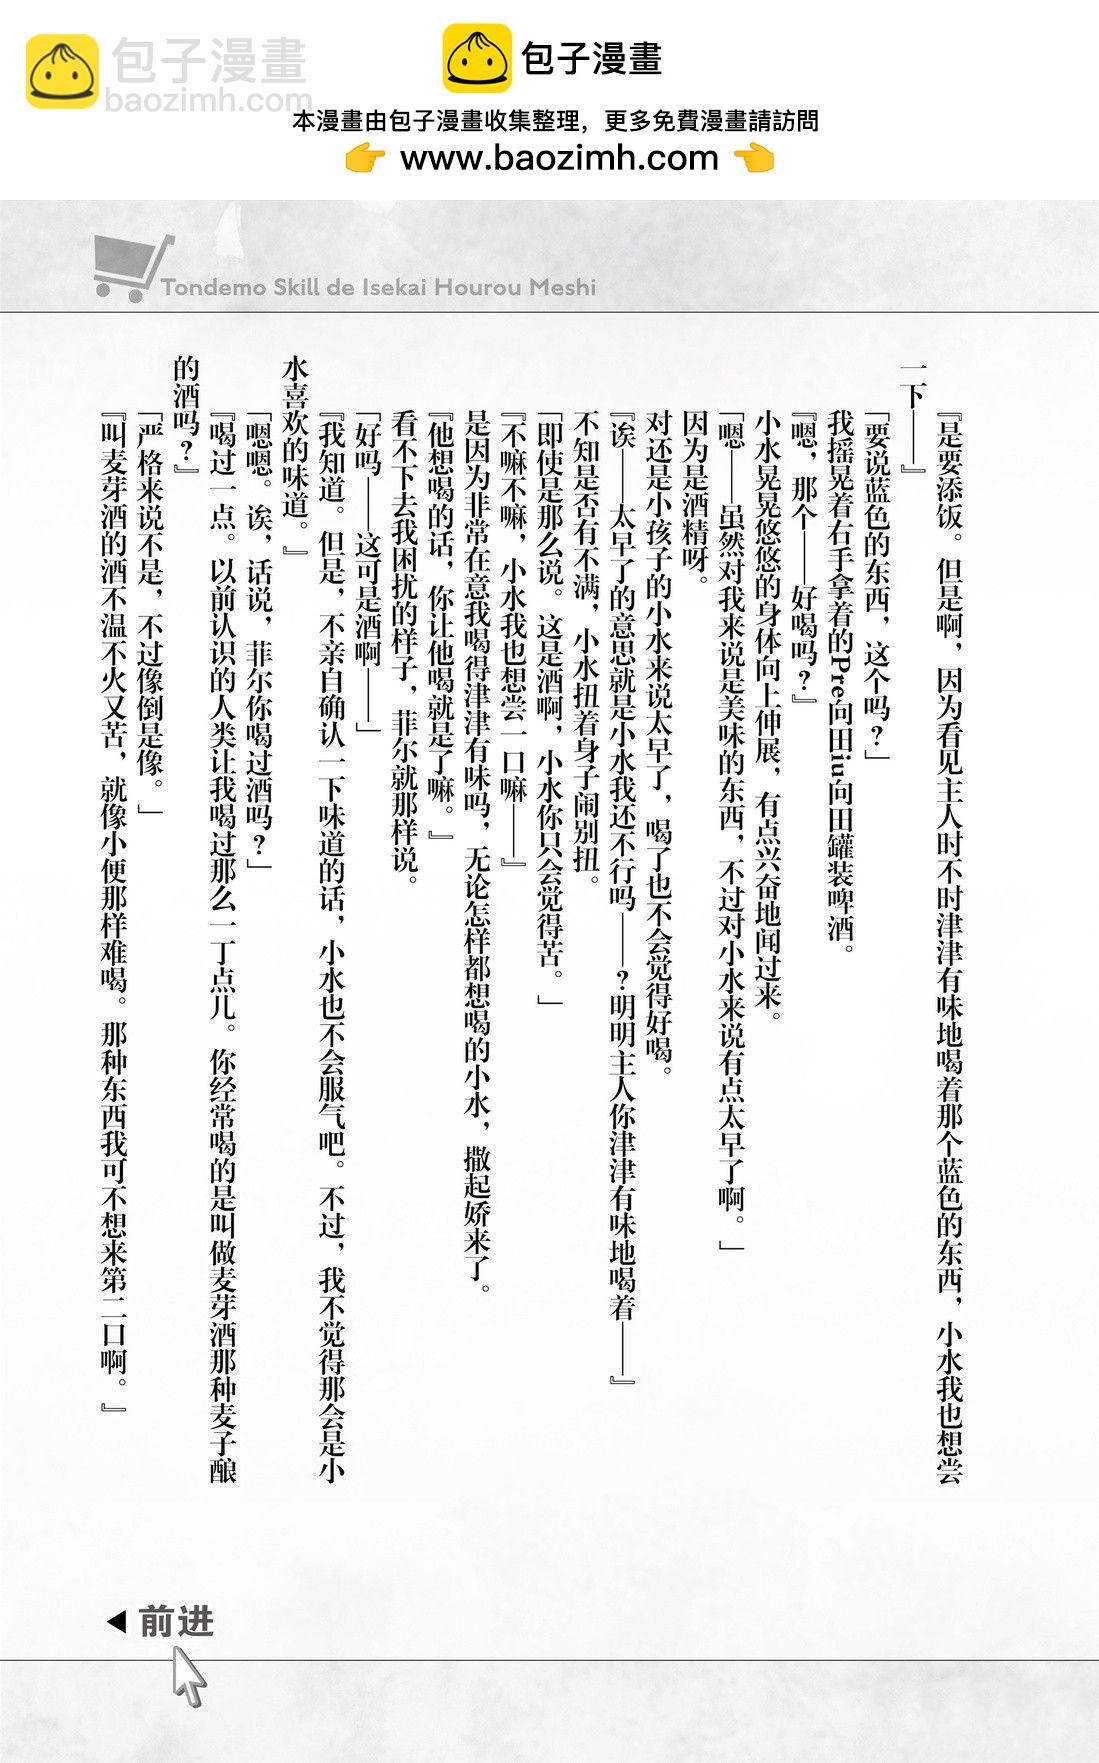 包子漫畫
baozimh.com
包子漫畫
本漫畫由包子漫畫收集整理，更多免費漫畫請訪問
👉 www.baozimh.com 👈
Tondemo Skill de Isekai Hourou Meshi
『是要添饭。但是啊，因为看见主人时不时津津有味地喝着那个蓝色的东西，小水我也想尝
一下——』
「要说蓝色的东西，这个吗？」
我摇晃着右手拿着的Pre向田iu向田罐装啤酒。
『嗯，那个——好喝吗？』
小水晃晃悠悠的身体向上伸展，有点兴奋地闻过来。
「嗯——虽然对我来说是美味的东西，不过对小水来说有点太早了啊。」
因为是酒精呀。
对还是小孩子的小水来说太早了，喝了也不会觉得好喝。
『诶——太早了的意思就是小水我还不行吗——？明明主人你津津有味地喝着——』
不知是否有不满，小水扭着身子闹别扭。
「即使是那么说。这是酒啊，小水你只会觉得苦。」
『不嘛不嘛，小水我也想尝一口嘛——』
是因为非常在意我喝得津津有味吗，无论怎样都想喝的小水，撒起娇来了。
『他想喝的话，你让他喝就是了嘛。』
看不下去我困扰的样子，菲尔就那样说。
「好吗——这可是酒啊——」
『我知道。但是，不亲自确认一下味道的话，小水也不会服气吧。不过，我不觉得那会是小
水喜欢的味道。』
「嗯嗯。诶，话说，菲尔你喝过酒吗？」
『喝过一点。以前认识的人类让我喝过那么一丁点儿。你经常喝的是叫做麦芽酒那种麦子酿
的酒吗？』
「严格来说不是，不过像倒是像。」
『叫麦芽酒的酒不温不火又苦，就像小便那样难喝。那种东西我可不想来第二口啊。』
◀前进